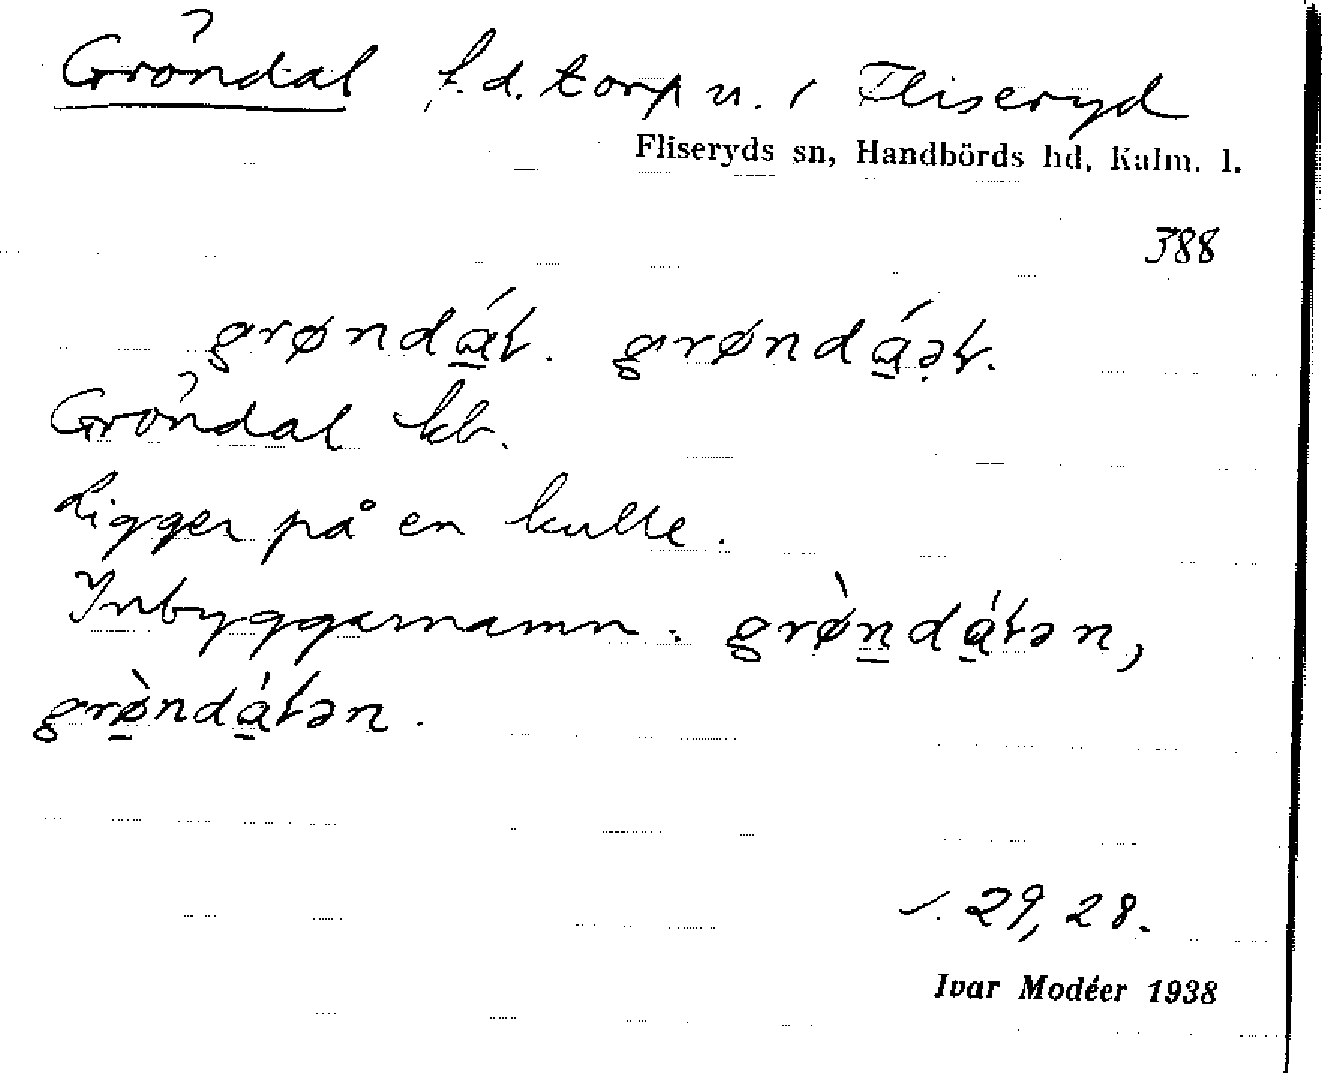 Gröndal f.d. torp u. 1 Fliseryd
Fliseryds sn, Handbörds hd, Kalm. l.
388
grøndáł. grøndáəł.
Gröndal kb.
Ligger på en kulle.
Inbyggarnamn: grøǹdáłən,
grø̀ndáłən.
s. 29, 28.
Ivar Modéer 1938